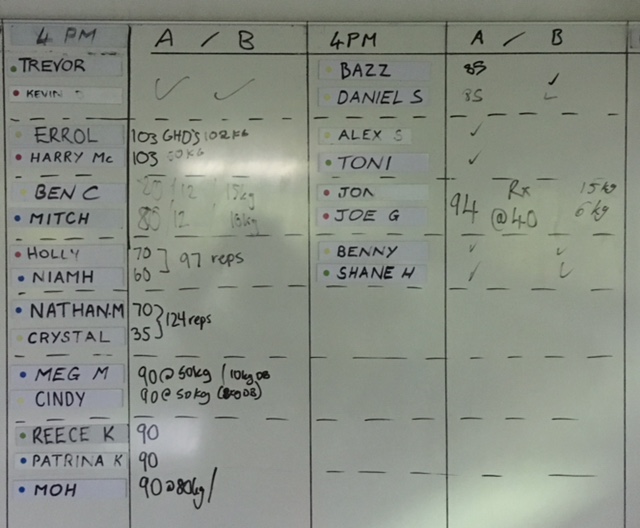 4 PM A / B
TREVOR
KEVIN
ERROL 103 GHD'S 102KG
HARRY Mc 103
BEN C 80/12 15kg
MITCH 80/12 15kg
HOLLY 70
NIAMH 60
97 reps
NATHAN.M 70
CRYSTAL 35
124 reps
MEG M 90@50kg / 10kg DB
CINDY 90@50kg
REECE K 90
PATRINA K 90
MOH 90@80kg/
4PM A / B
BAZZ 85 ✓
DANIEL S 85 ✓
ALEX S ✓
TONI ✓
JON Rx 15kg
JOE G 94 @40 6kg
BENNY ✓ ✓
SHANE H ✓ ✓